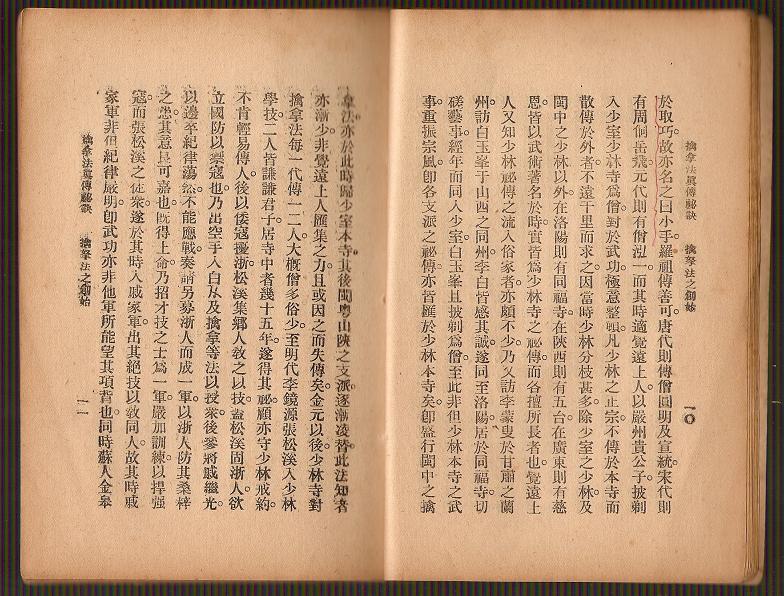 擒拿法眞傳祕訣　擒拏法之創始　一〇
於取巧。故亦名之曰小手。羅祖傳善可。唐代則傳僧圓明及宣統。宋代則
有周侗岳飛。元代則有僧泓一。而其時適覺遠上人。以嚴州貴公子。披剃
入少室少林寺爲僧。對於武功。極意整頓。凡少林之正宗。不傳於本寺而
散傳於外者。不遠千里而求之。因當時少林分枝甚多。除少室之少林。及
閩中之少林以外。在洛陽則有同福寺。在陝西則有五台。在廣東則有慈
恩。皆以武術著名於時。實皆爲少林寺之祕傳而各擅所長者也。覺遠上
人又知少林祕傳之流入俗家者亦頗不少。乃又訪李叟於甘肅之蘭
州。訪白玉峯于山西之同州。李白皆感其誠。遂同至洛陽。居於同福寺。切
磋藝事。經年而同入少室。白玉峯且披剃爲僧。至此非但少林本寺之武
事重振宗風。卽各支派之祕傳。亦皆匯於少林本寺矣。卽盛行閩中之擒
拿法。亦於此時歸少室本寺。其後閩粵山陝之支派。逐漸凌替。此法知者
亦漸少。非覺遠上人匯集之力。且或因之而失傳矣。金元以後。少林寺對
擒拿法。每一代傳一二人。大槪僧多俗少。至明代李鏡源張松溪入少林
學技。二人皆謙謙君子。居寺中者幾十五年。遂得其祕。顧亦守少林戒約。
不肯輕易傳人。後以倭寇擾浙。松溪集鄉人敎之以技。蓋松溪固浙人。欲
立國防以禦寇也。乃出空手入白刃及擒拿等法以授衆。後參將戚繼光。
以邊卒紀律蕩然。不能應戰。奏請另募浙人而成一軍。以浙人防其桑梓
之患。其意良可嘉也。旣得上命。乃招才技之士爲一軍。嚴加訓練。以捍强
寇。而張松溪之徒衆。遂於其時入戚家軍。出其絕技以敎同人。故其時戚
家軍非但紀律嚴明。卽武功亦非他軍所能望其項背也。同時蘇人金皋
擒拿法眞傳祕訣　擒拏法之創始　一一